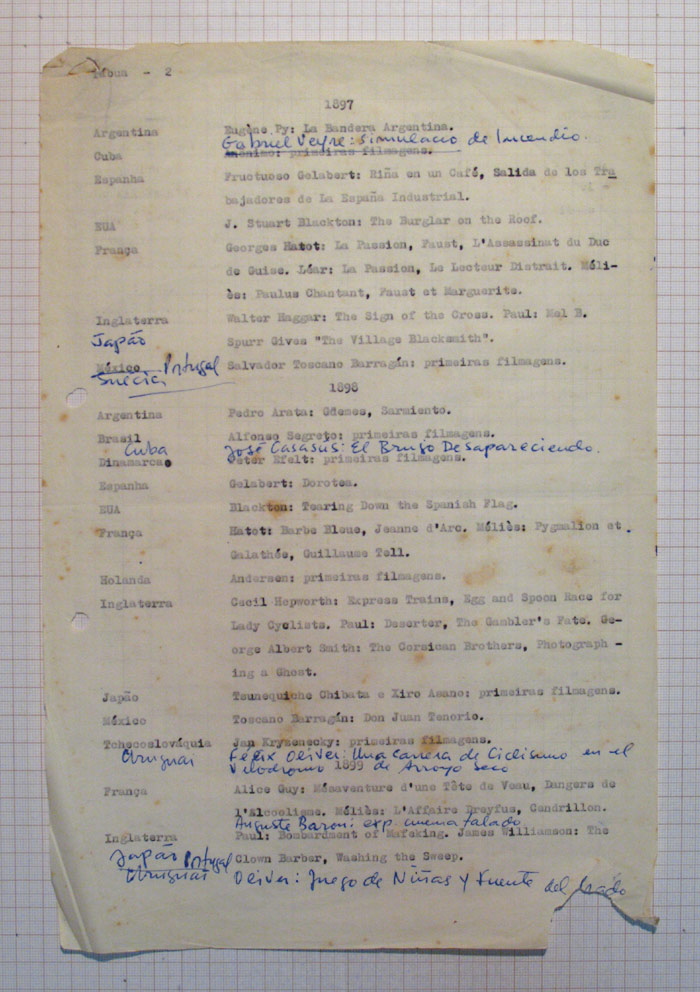 Tábua - 2
1897
Argentina Eugène Py: La Bandera Argentina.
Gabriel Veyre: Simulacro de Incendio.
Cuba Anônimo: primeiras filmagens.
Espanha Fructuoso Gelabert: Riña en un Café, Salida de los Tra
bajadores de La España Industrial.
EUA J. Stuart Blackton: The Burglar on the Roof.
França Georges Hatot: La Passion, Faust, L'Assassinat du Duc
de Guise. Léar: La Passion, Le Lecteur Distrait. Méli-
ès: Paulus Chantant, Faust et Marguerite.
Inglaterra Walter Haggar: The Sign of the Cross. Paul: Mel B.
Japão Spurr Gives "The Village Blacksmith".
México Portugal Salvador Toscano Barragán: primeiras filmagens.
Suecia
1898
Argentina Pedro Arata: Güemes, Sarmiento.
Brasil Alfonso Segreto: primeiras filmagens.
Cuba José Casasus: El Brujo Desapareciendo.
Dinamarca Peter Efelt: primeiras filmagens.
Espanha Gelabert: Dorotea.
EUA Blackton: Tearing Down the Spanish Flag.
França Hatot: Barbe Bleue, Jeanne d'Arc. Méliès: Pygmalion et
Galathée, Guillaume Tell.
Holanda Andersen: primeiras filmagens.
Inglaterra Cecil Hepworth: Express Trains, Egg and Spoon Race for
Lady Cyclists. Paul: Deserter, The Gambler's Fate. Ge-
orge Albert Smith: The Corsican Brothers, Photograph -
ing a Ghost.
Japão Tsunequiche Chibata e Xiro Asano: primeiras filmagens.
México Toscano Barragán: Don Juan Tenorio.
Tchecoslováquia Jan Kryzenecky: primeiras filmagens.
Uruguai Félix Oliver: Una Carrera de Ciclismo en el
Velodromo de Arroyo Seco
1899
França Alice Guy: Mésaventure d'une Tête de Veau, Dangers de
l'Alcoolisme. Méliès: L'Affaire Dreyfus, Cendrillon.
Auguste Baron: exp. cinema falado
Inglaterra Paul: Bombardment of Mafeking. James Williamson: The
Japão Portugal Clown Barber, Washing the Sweep.
Uruguai Oliver: Juego de Niñas y Fuente del Prado